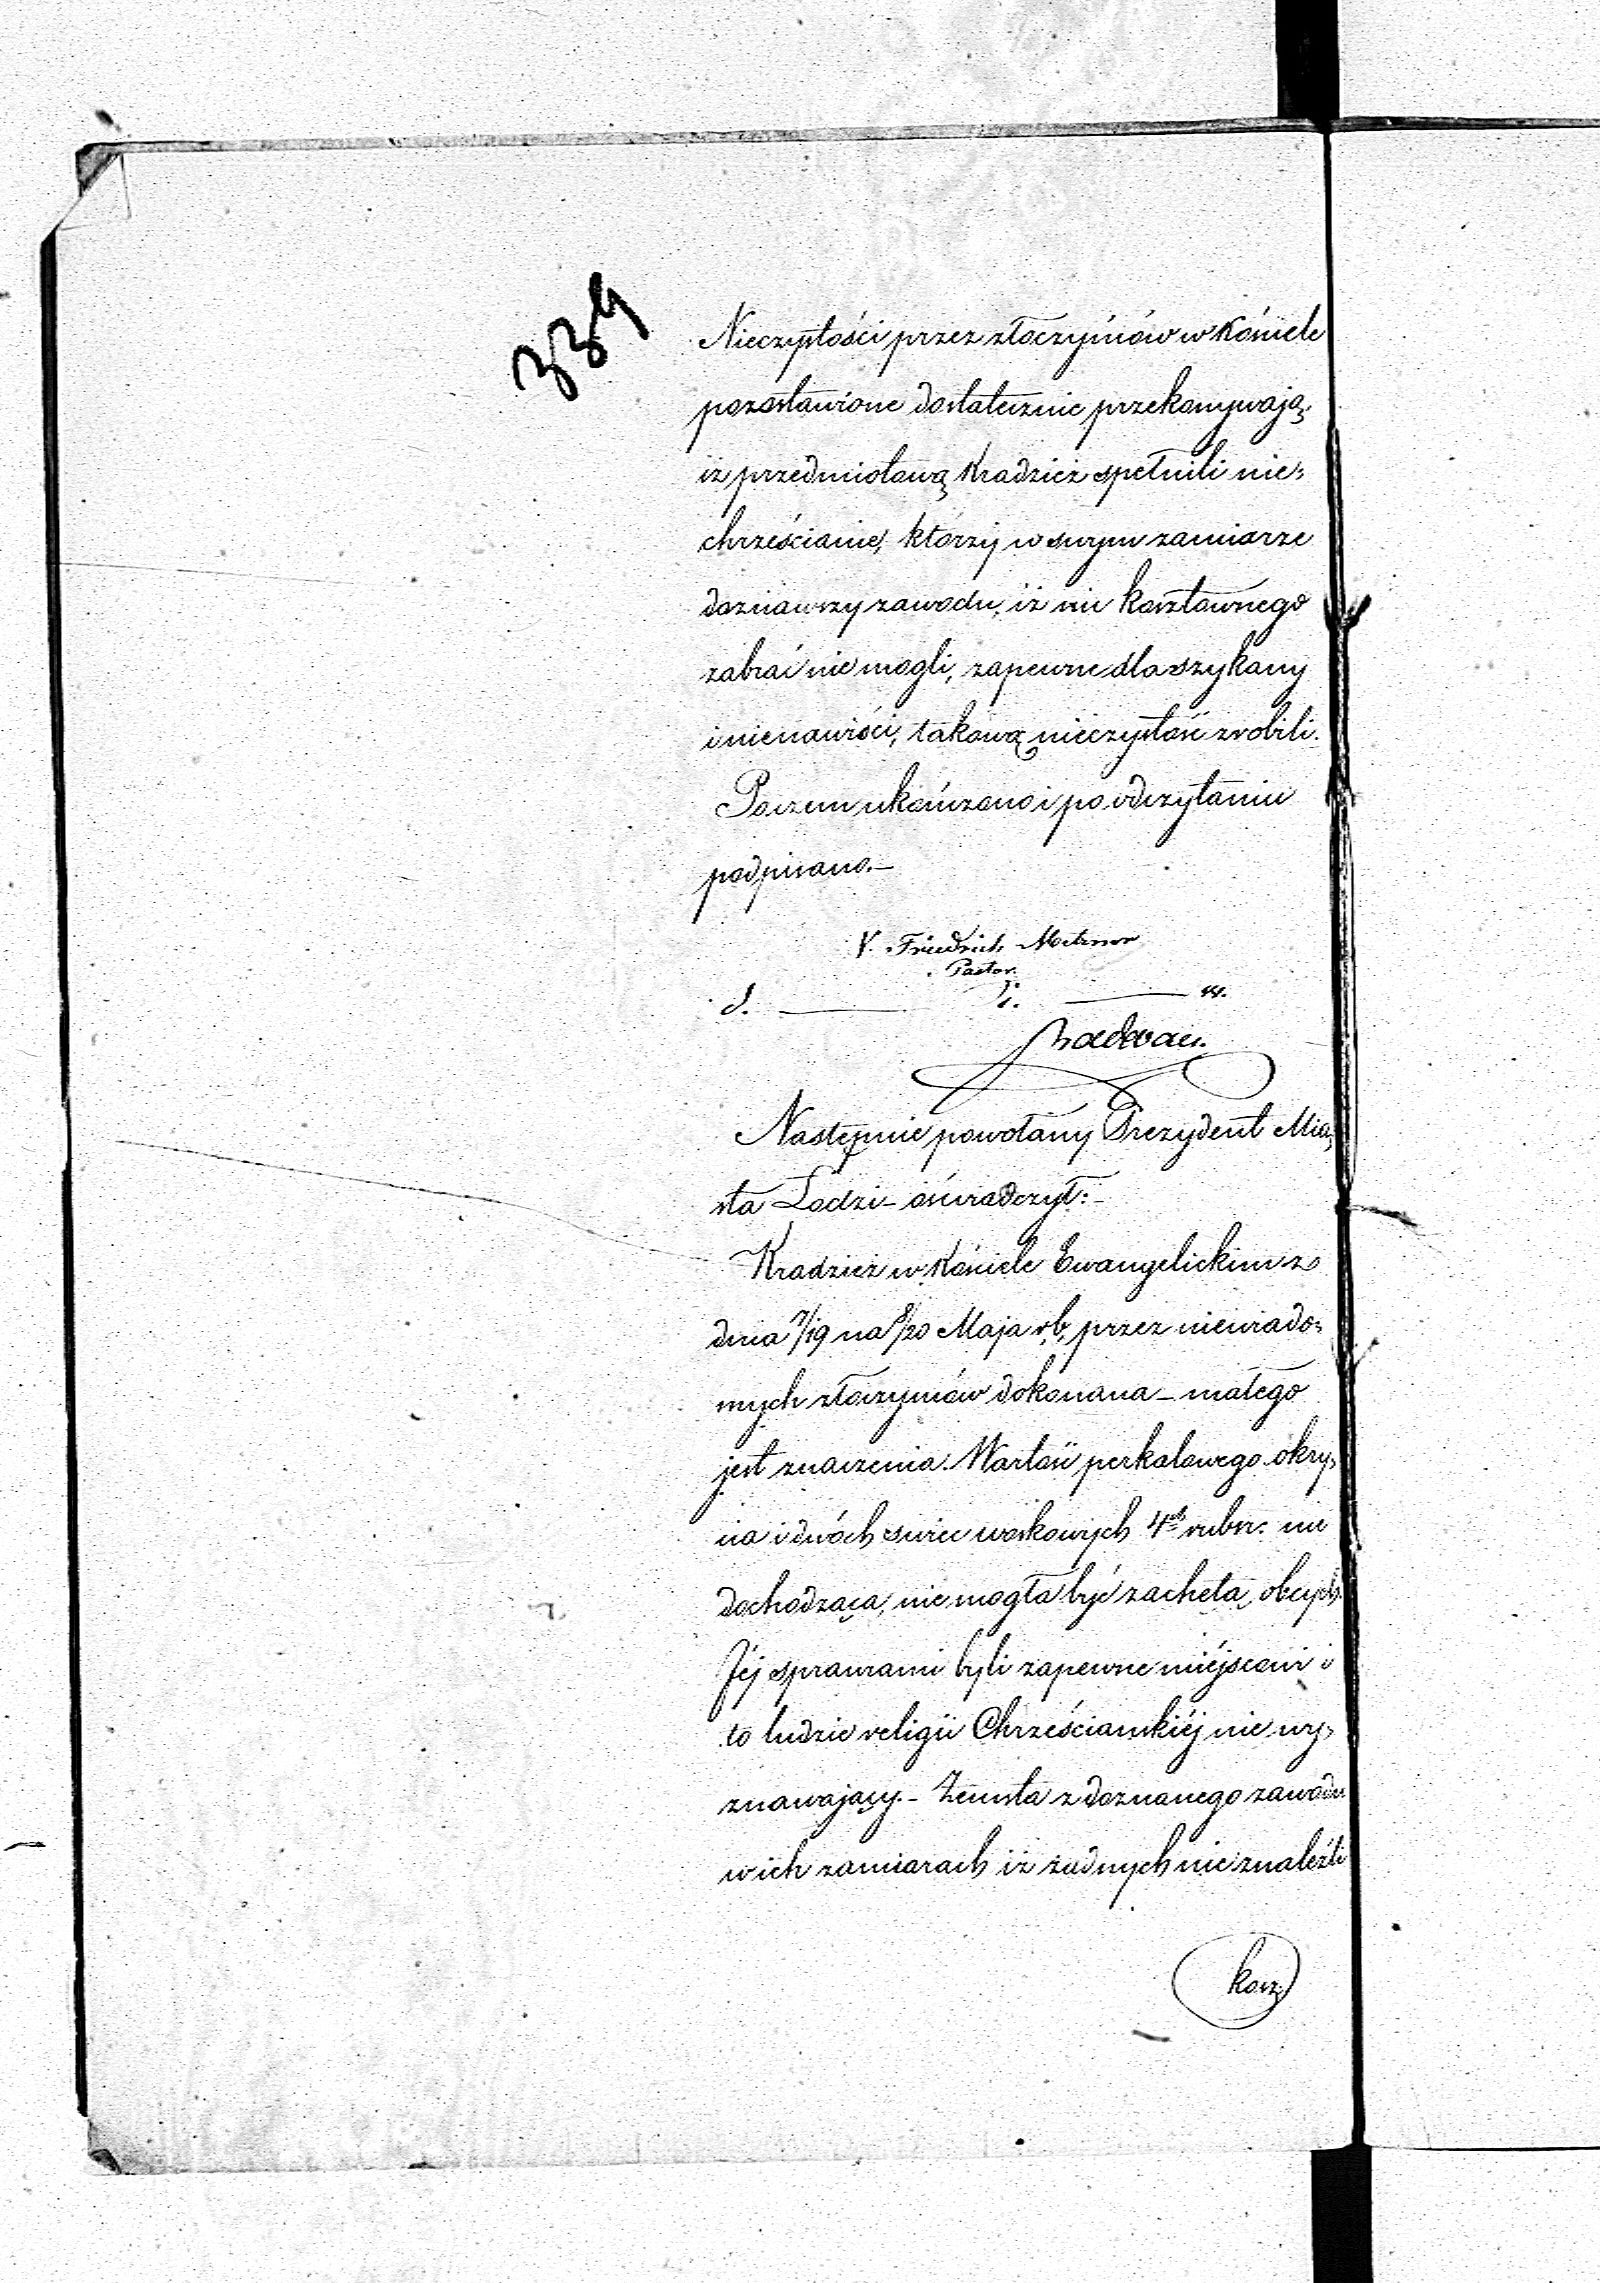 334
Nieczystości przez złoczyńców w Kościele
pozostawione dostatecznie przekonywają,
iż przedmiotową Kradzież spełnili nie=
chrześcianie, którzy w swym zamiarze
doznawszy zawodu, iż nic kosztownego
zabrać nie mogli, zapewne dla szykany
i nienawiści, takową nieczystość zrobili.
Poczem ukończono i po odczytaniu
podpisano.—
Friedrich Metzner
Pastor.
Następnie powołany Prezydent Mia=
sta Łodzi - oświadczył:-
Kradzież w Kościele Ewangelickim z
dnia 7/19 na 8/20 Maja r.b. przez niewiado=
mych złoczyńców dokonana - małego
jest znaczenia. Wartość perkalowego okry=
cia i dwóch świec woskowych 4ch rubsr. nie
dochodząca, nie mogła być zachetą obcych.
Jej sprawcami byli zapewne miéjscowi i
to ludzie religii Chrześciańskiéj nie wy=
znawający.- Zemsta z doznanego zawodu
w ich zamiarach iż żadnych nie znaleźli
kosz